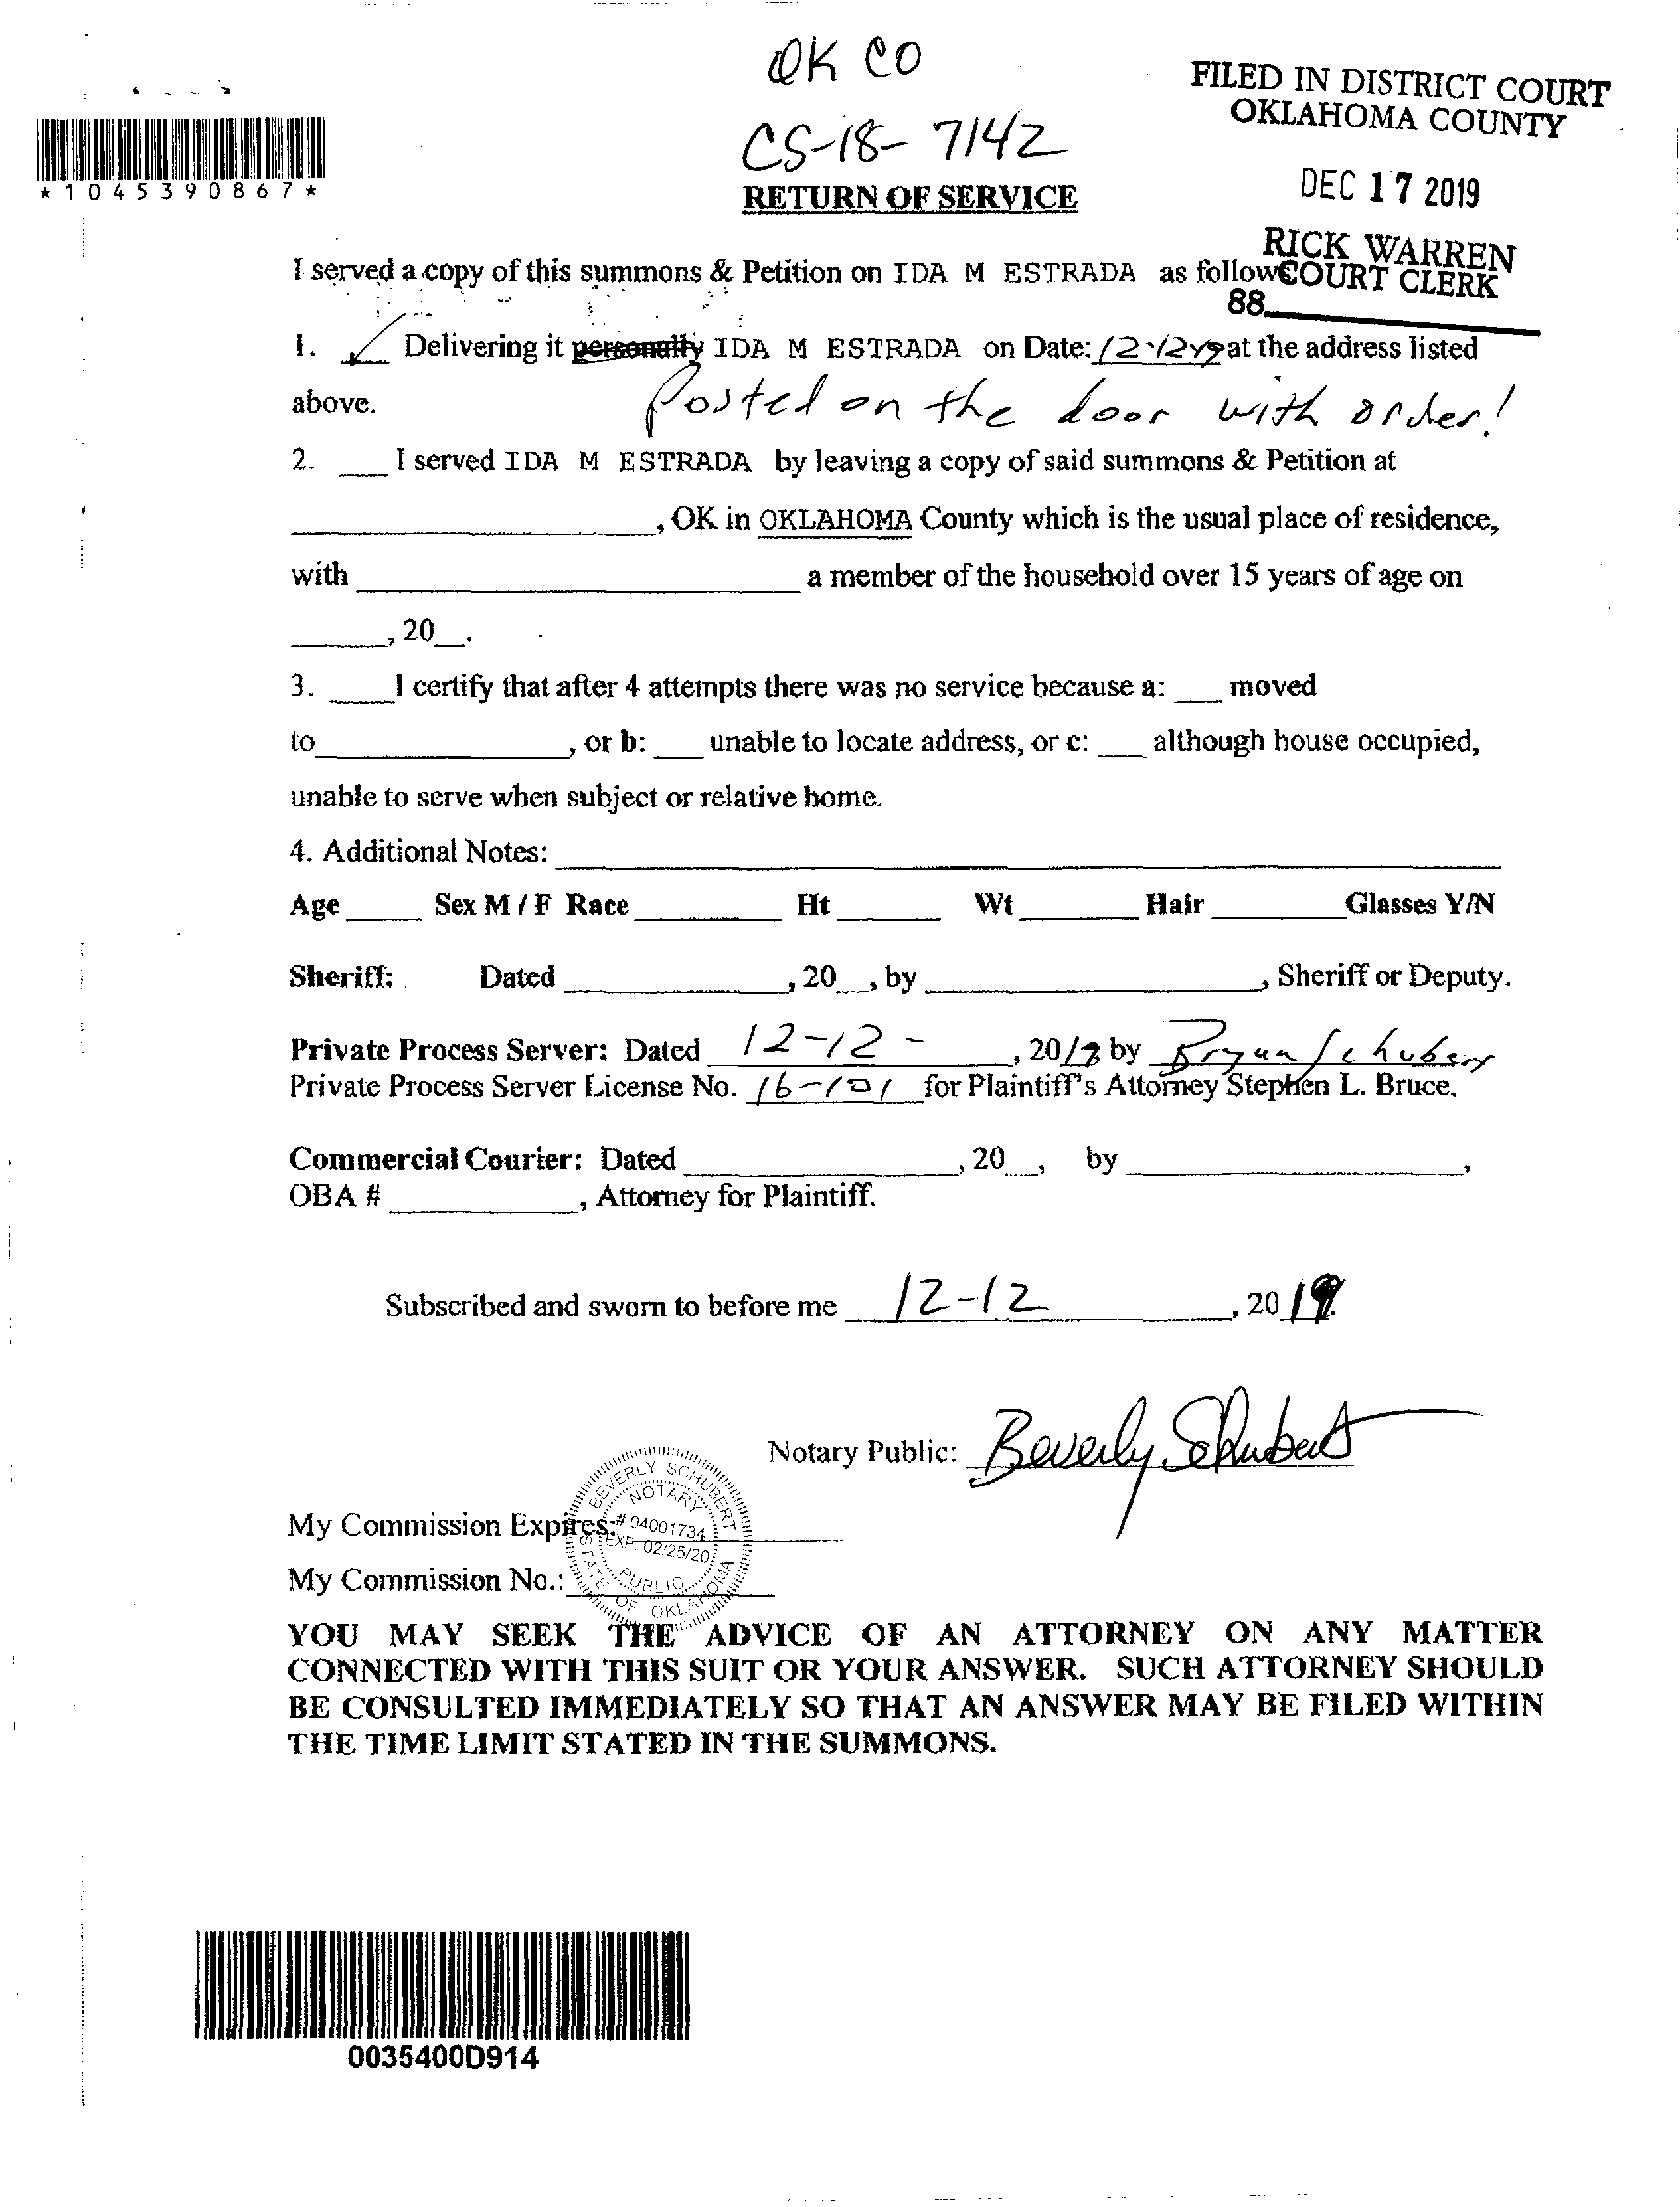 OK CO
FILED IN DISTRICT COURT
OKLAHOMA COUNTY
CS-18-7142
*1045390867*
RETURN OF SERVICE
DEC 17 2019
RICK WARREN
COURT CLERK
88
I served a copy of this summons & Petition on IDA M ESTRADA as follow
1. Delivering it personally IDA M ESTRADA on Date: 12-12-19 at the address listed
above. Posted on the door with order!
2. ___ I served IDA M ESTRADA by leaving a copy of said summons & Petition at
____________, OK in OKLAHOMA County which is the usual place of residence,
with ____________ a member of the household over 15 years of age on
______, 20__.
3. ____ I certify that after 4 attempts there was no service because a: ___ moved
to____________, or b: ___ unable to locate address, or c: ___ although house occupied,
unable to serve when subject or relative home.
4. Additional Notes: ____________
Age _____ Sex M / F Race ________ Ht ______ Wt _______ Hair ________ Glasses Y/N
Sheriff: Dated ____________, 20__, by ____________, Sheriff or Deputy.
Private Process Server: Dated 12-12-, 20 by Bryan Schubert
Private Process Server License No. 16-101 for Plaintiff's Attorney Stephen L. Bruce.
Commercial Courier: Dated ____________, 20__, by ____________,
OBA # __________, Attorney for Plaintiff.
Subscribed and sworn to before me 12-12, 2019.
Notary Public: Beverly Schubert
BEVERLY SCHUBERT
NOTARY
# 04001734
EXP. 02/25/20
PUBLIC
STATE OF OKLAHOMA
My Commission Expires:
My Commission No.:
YOU MAY SEEK THE ADVICE OF AN ATTORNEY ON ANY MATTER
CONNECTED WITH THIS SUIT OR YOUR ANSWER. SUCH ATTORNEY SHOULD
BE CONSULTED IMMEDIATELY SO THAT AN ANSWER MAY BE FILED WITHIN
THE TIME LIMIT STATED IN THE SUMMONS.
0035400D914